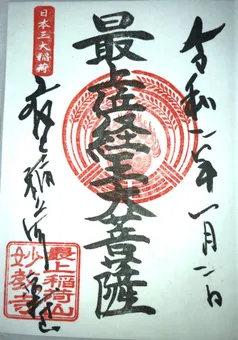 令和六年一月二日
最上位経王大菩薩
日本三大稲荷
最上稲荷
最上稲荷山
妙教寺